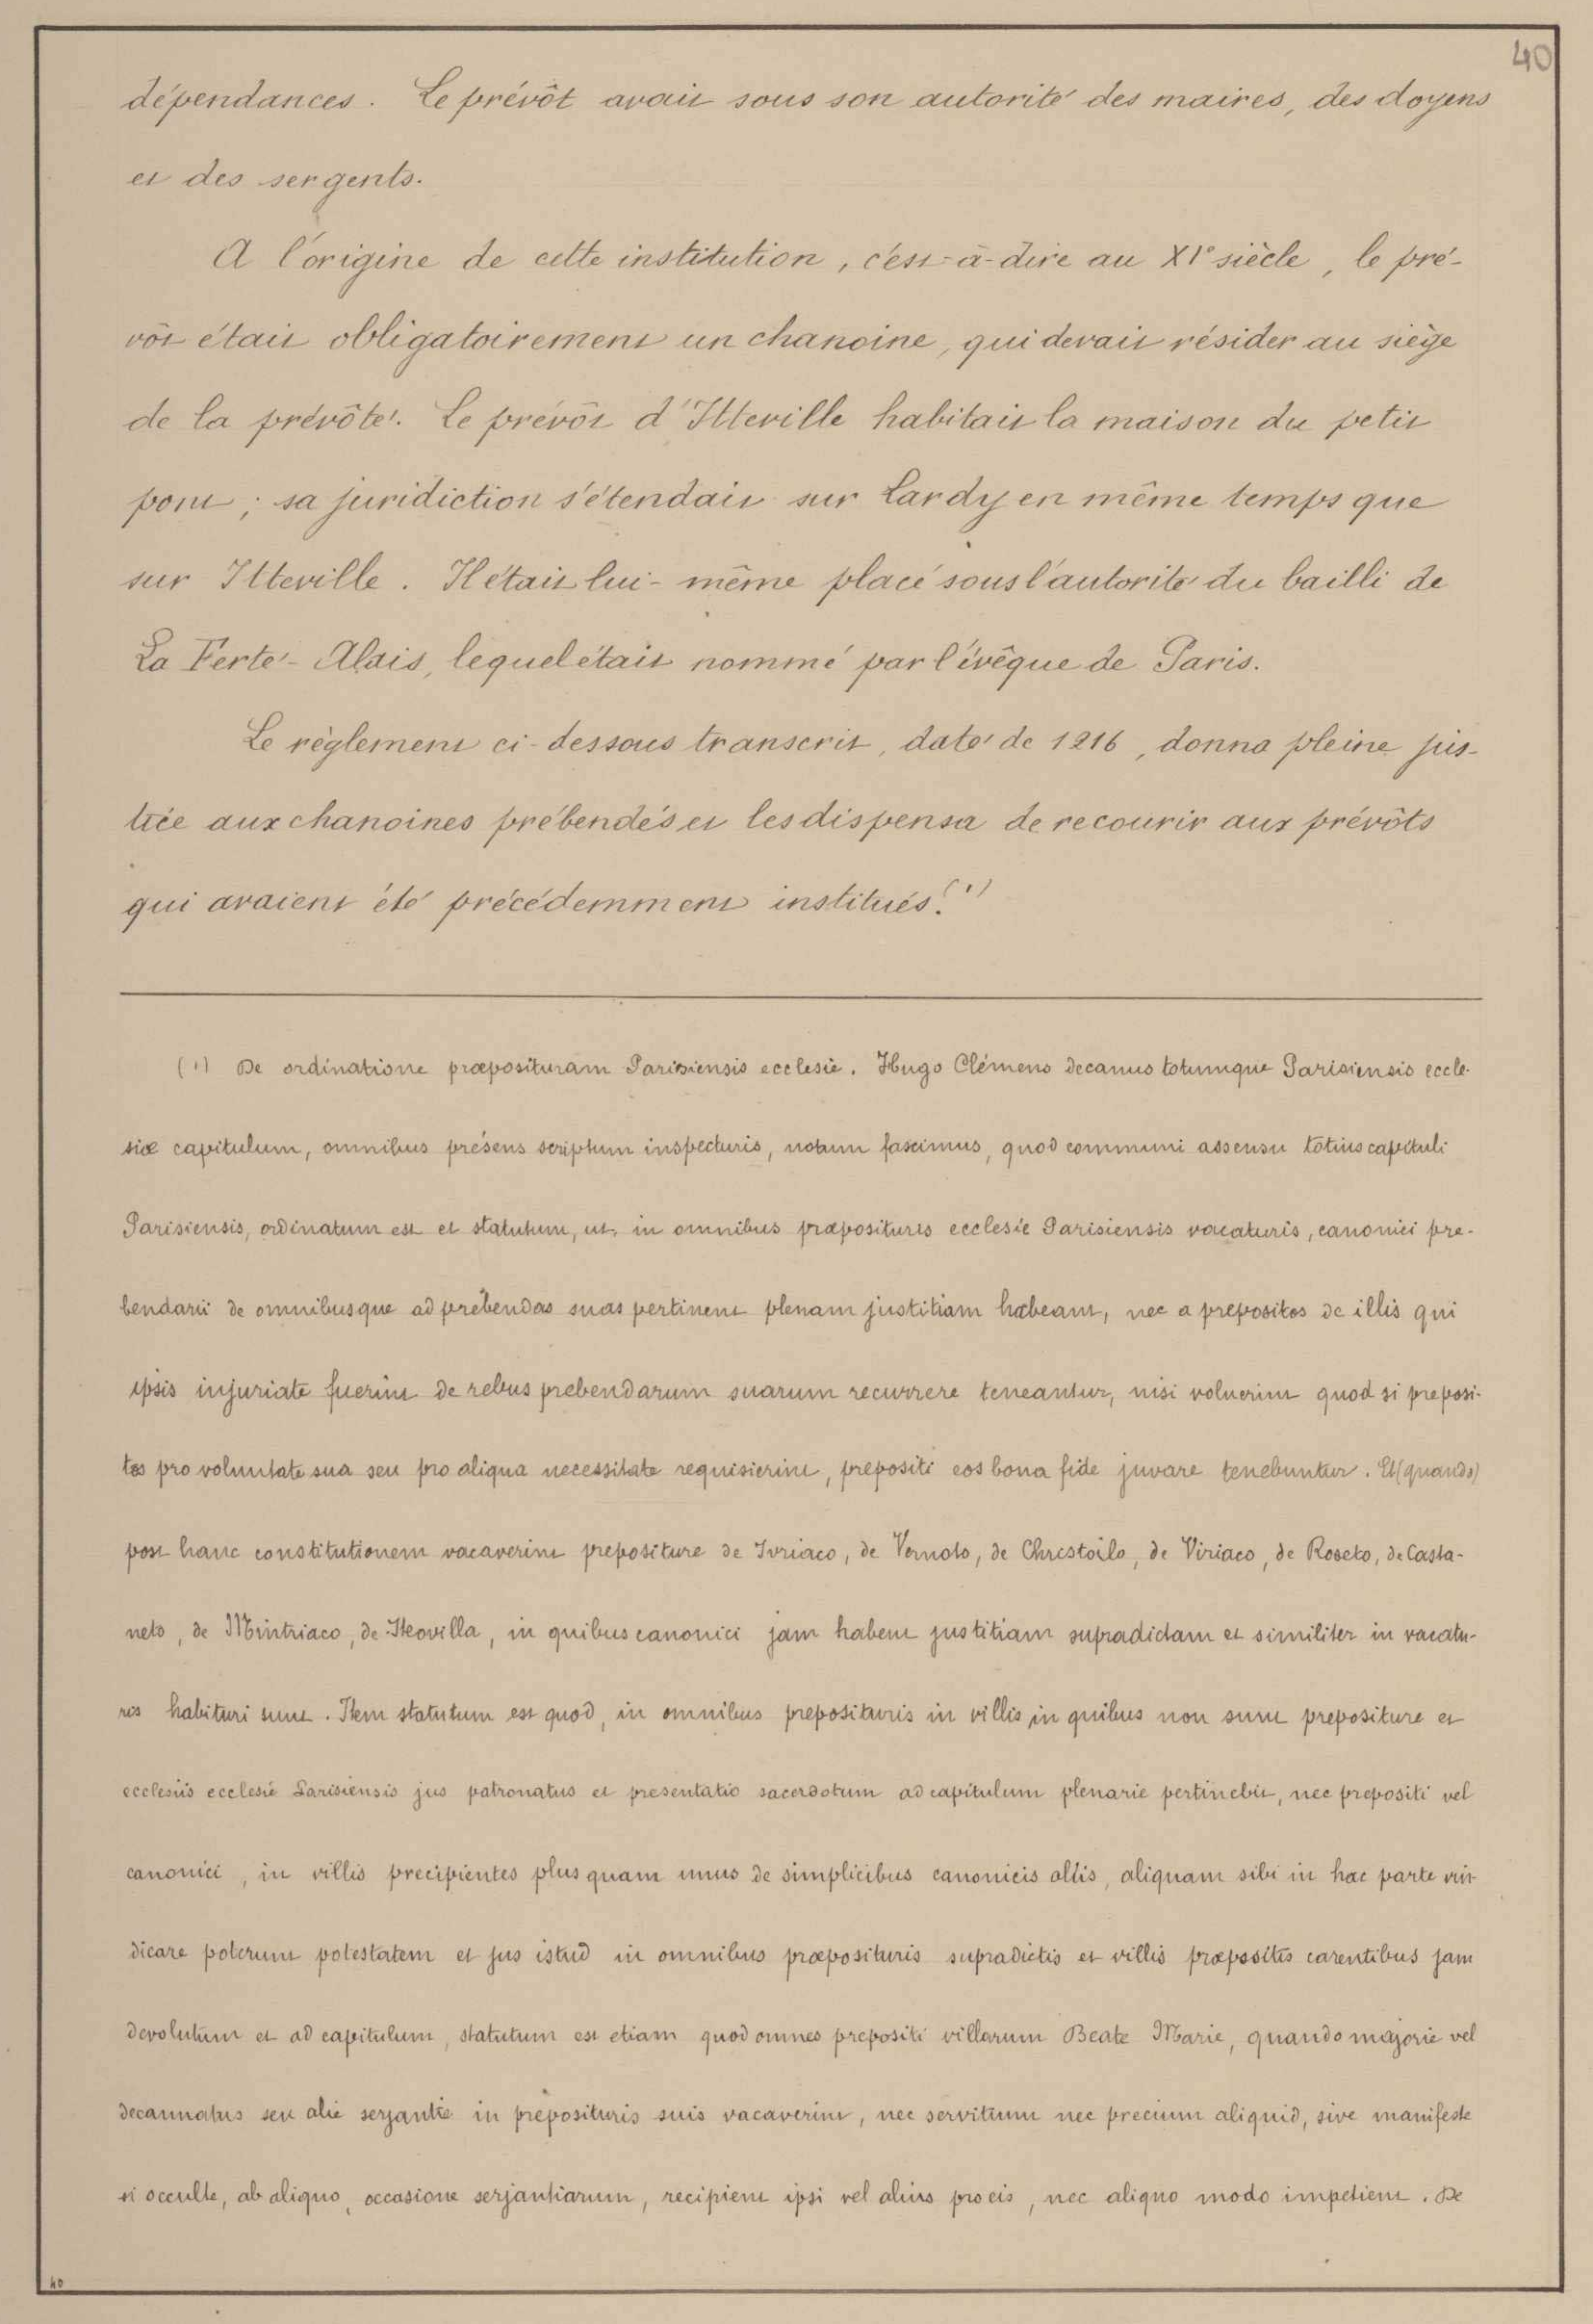 40
dépendances. Le prévôt avait sous son autorité des maires, des doyens
et des sergents.
A l'origine de cette institution, c'est-à-dire au XIe siècle, le pré-
vôt était obligatoirement un chanoine, qui devait résider au siège
de la prévôté. Le prévôt d'Itteville habitait la maison du petit
pont; sa juridiction s'étendait sur Lardy en même temps que
sur Itteville. Il était lui-même placé sous l'autorité du bailli de
La Ferté-Alais, lequel était nommé par l'évêque de Paris.
Le règlement ci-dessous transcrit, daté de 1216, donna pleine jus-
tice aux chanoines prébendés et les dispensa de recourir aux prévôts
qui avaient été précédemment institués. (1)
(1) De ordinatione præposituram Parisiensis ecclesie. Hugo Clémens decanus totumque Parisiensis eccle-
siæ capitulum, omnibus présens scriptum inspecturis, notum fascimus, quod communi assensu totius capituli
Parisiensis, ordinatum est et statutum, ut in omnibus præposituris ecclesie Parisiensis vacaturis, canonici pre-
bendarii de omnibusque ad prebendas suas pertinent plenam justitiam habeant, nec a prepositos de illis qui
ipsis injuriate fuerint de rebus prebendarum suarum recurrere teneantur, nisi voluerint quod si preposi-
tos pro voluntate sua seu pro aliqua necessitate requisierint, prepositi eos bona fide juvare tenebuntur. Et (quando)
post hanc constitutionem vacaverint prepositure de Ivriaco, de Vernoto, de Christoilo, de Viriaco, de Roseto, de Casta-
neto, de Mintriaco, de Iteovilla, in quibus canonici jam habent justitiam supradictam et similiter in vacatu-
ris habituri sunt. Item statutum est quod, in omnibus preposituris in villis in quibus non sunt prepositure et
ecclesiis ecclesie Parisiensis jus patronatus et presentatio sacerdotum ad capitulum plenarie pertinebit, nec prepositi vel
canonici, in villis precipientes plus quam unus de simplicibus canonicis allis, aliquam sibi in hac parte vin-
dicare poterunt potestatem et jus istud in omnibus præposituris supradictis et villis præpositis carentibus jam
devolutum et ad capitulum, statutum est etiam quod omnes prepositi villarum Beate Marie, quando majorie vel
decannatus seu alie serjantie in preposituris suis vacaverint, nec servitium nec precium aliquid, sive manifeste
si occulte, ab aliquo, occasione serjantiarum, recipient ipsi vel alius pro eis, nec aliquo modo impedient. De
40